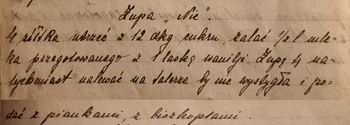 Zupa „Nic".
4 żółtka utrzeć z 12 dkg cukru, zalać 1/2 l mle-
ka przegotowanego z 1 laską wanilji. Zupę na-
tychmiast nalewać na talerze by nie wystygła i po-
dać z piankami, z biszkoptami.